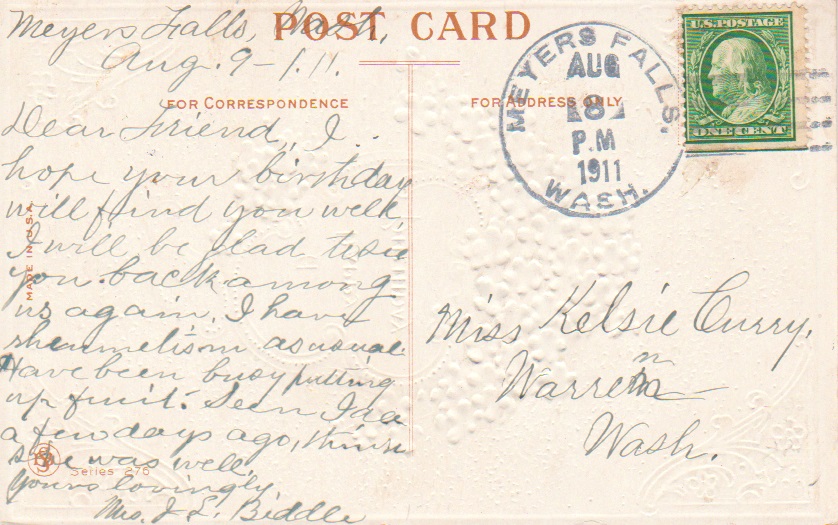 POST CARD
Meyers Falls, Wash,
Aug. 9 - 1.11.
FOR CORRESPONDENCE
Dear Friend, I
hope your birthday
will find you well
I will be glad to see
you back among
us again. I have
rheumetism as usual.
Have been busy putting
up fruit. Seen Ida
a few days ago, think
she was well.
yours lovingly
Mrs. J L. Biddle
MADE IN U.S.A.
Series 276
FOR ADDRESS ONLY
MEYERS FALLS,
AUG
8
P.M
1911
WASH.
U.S. POSTAGE
ONE CENT
Miss Kelsie Curry,
Warren
Wash.